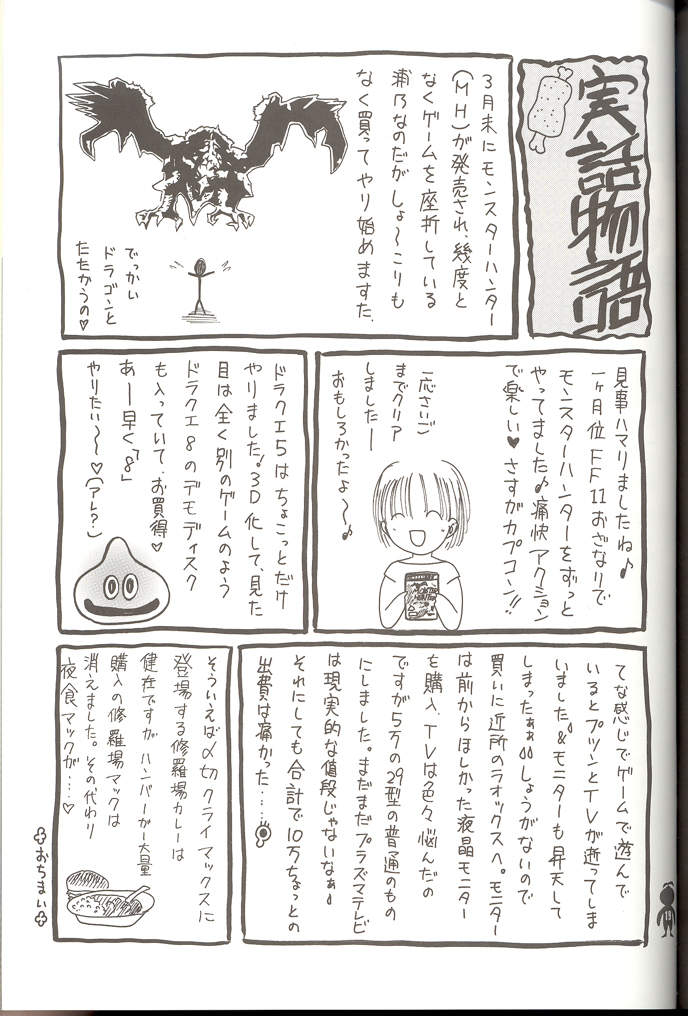 実話物語
3月末にモンスターハンター
(MH)が発売され、幾度と
なくゲームを座折している
浦乃なのだがしょ〜こりも
なく買ってやり始めますた.
でっかい
ドラゴンと
たたかうの♡
見事ハマりましたね♪
一ヶ月位FF11おざなりで
モンスターハンターをずっと
やってました♪痛快アクション
で楽しい♥さすがカプコン!!
一応さいご
までクリア
しましたー
おもしろかったよ〜♪
MONSTER HUNTER
ドラクエ5はちょこっとだけ
やりました!3D化して、見た
目は全く別のゲームのよう
ドラクエ8のデモディスク
も入っていて、お買得♥
あー早く「8」
やりたい〜♡(アレ?)
てな感じでゲームで遊んで
いるとプツンとTVが逝ってしま
いました。&モニターも昇天して
しまったぁぁ しょうがないので
買いに近所のラオックスへ。モニター
は前からほしかった液晶モニター
を購入、TVは色々悩んだの
ですが5万の29型の普通のもの
にしました。まだまだプラズマテレビ
は現実的な値段じゃないなぁ
それにしても合計で10万ちょっとの
出費は痛かった……
そういえば〆切クライマックスに
登場する修羅場カレーは
健在ですが ハンバーガー大量
購入の修羅場マックは
消えました。その代わり
夜食マックが……♡
おちまい
19